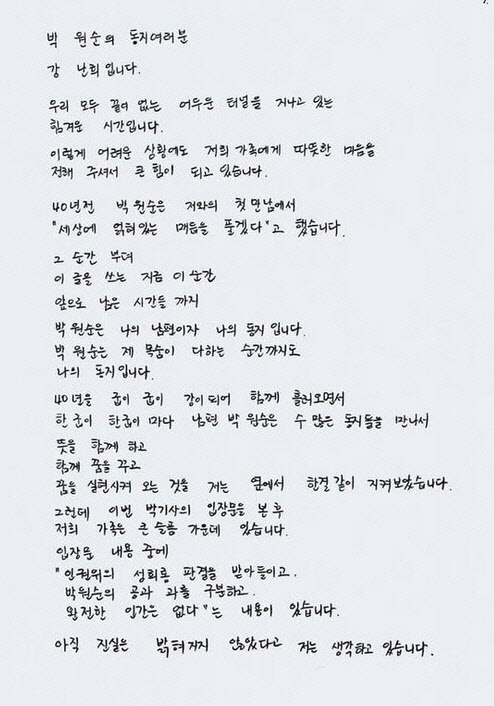 박 원순의 동지여러분
강 난희 입니다.
우리 모두 끝이 없는 어두운 터널을 지나고 있는
힘겨운 시간입니다.
이렇게 어려운 상황에도 저희 가족에게 따뜻한 마음을
전해 주셔서 큰 힘이 되고 있습니다.
40년전 박 원순은 저와의 첫 만남에서
"세상에 얽혀있는 매듭을 풀겠다"고 했습니다.
그 순간 부터
이 글을 쓰는 지금 이 순간
앞으로 남은 시간들 까지
박 원순은 나의 남편이자 나의 동지 입니다.
박 원순는 제 목숨이 다하는 순간까지도
나의 동지입니다.
40년을 굽이 굽이 강이되어 함께 흘러오면서
한 굽이 한굽이 마다 남편 박 원순은 수 많은 동지들을 만나서
뜻을 함께 하고
함께 꿈을 꾸고
꿈을 실현시켜 오는 것을 저는 옆에서 한결 같이 지켜보았습니다.
그런데 이번 박기사의 입장문을 본 후
저희 가족은 큰 슬픔 가운데 있습니다.
입장문 내용 중에
"인권위의 성희롱 판결을 받아들이고.
박원순의 공과 과를 구분하고.
완전한 인간은 없다"는 내용이 있습니다.
아직 진실은 밝혀지지 않았다고 저는 생각하고 있습니다.